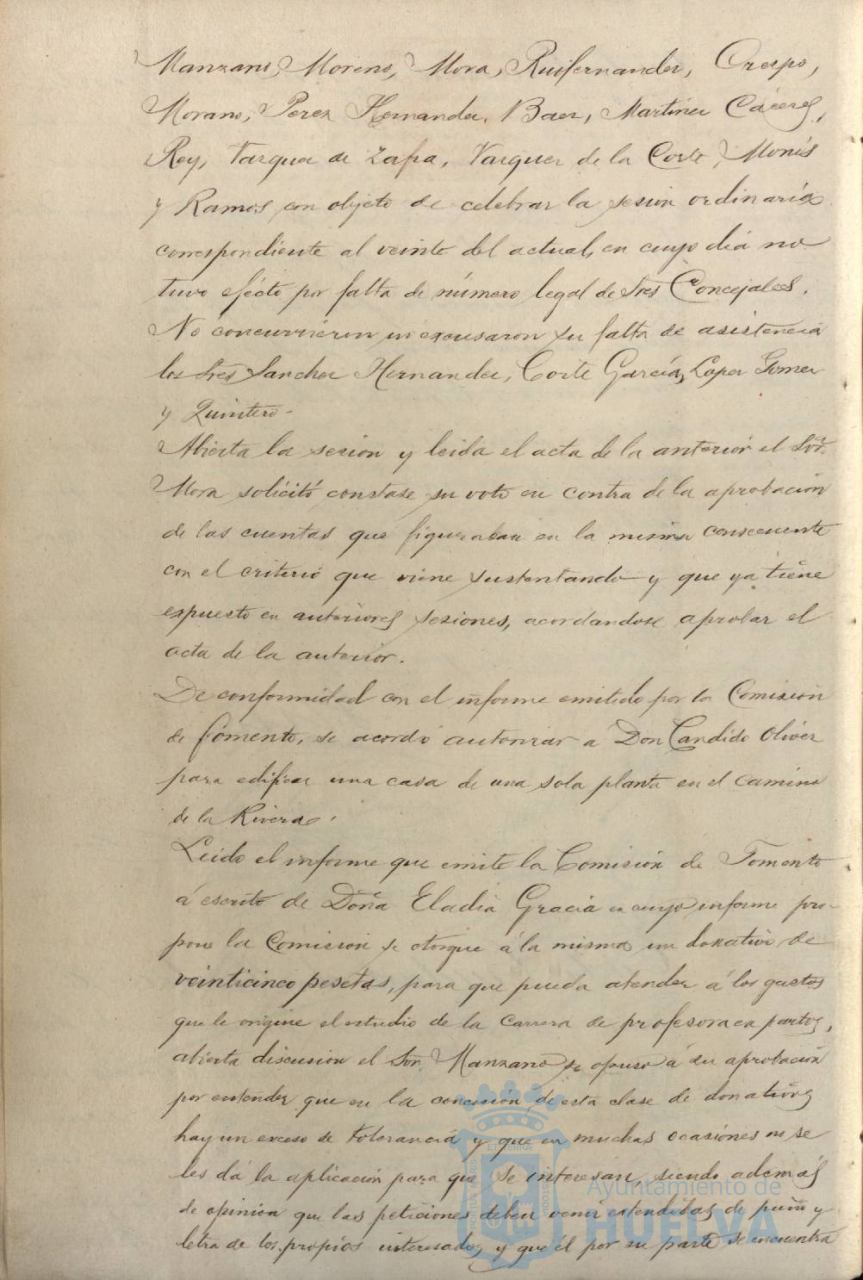 Manzano, Moreno, Mora, Ruifernandez, Crespo,
Morano, Perez Hernandez, Baez, Martinez Cáceres,
Rey, Vazquez de Zafa, Vazquez de la Corte, Monís
y Ramos, con objeto de celebrar la sesion ordinaria
correspondiente al veinte del actual, en cuyo dia no
tuvo efecto por falta de número legal de Sres Concejales.
No concurrieron ni excusaron su falta de asistencia
los Sres Sanchez Hernandez, Corte García, Lopez Gomez
y Quintero.
Abierta la sesion y leida el acta de la anterior el Sor.
Mora solicitó constase su voto en contra de la aprobación
de las cuentas que figuraban en la misma consecuente
con el criterio que viene sustentando y que ya tiene
expuesto en anteriores sesiones, acordandose aprobar el
acta de la anterior.
De conformidad con el informe emitido por la Comision
de fomento, se acordó autorizar a Don Candido Oliver
para edificar una casa de una sola planta en el camino
de la Rivera.
Leido el informe que emite la Comisión de Fomento
á escrito de Doña Eladia Gracia en cuyo informe pro-
pone la Comision se otorgue á la misma un donativo de
veinticinco pesetas, para que pueda atender á los gastos
que le origine el estudio de la carrera de profesora en partos,
abierta discusion el Sor. Manzano se opuso á su aprobación
por entender que en la concesión de esta clase de donativos
hay un exceso de tolerancia y que en muchas ocasiones no se
les dá la aplicación para que se interesan, siendo además
de opinion que las peticiones deben venir estendidas de puño y
letra de los propios interesados y que él por su parte se encuentra
Ayuntamiento de
HUELVA